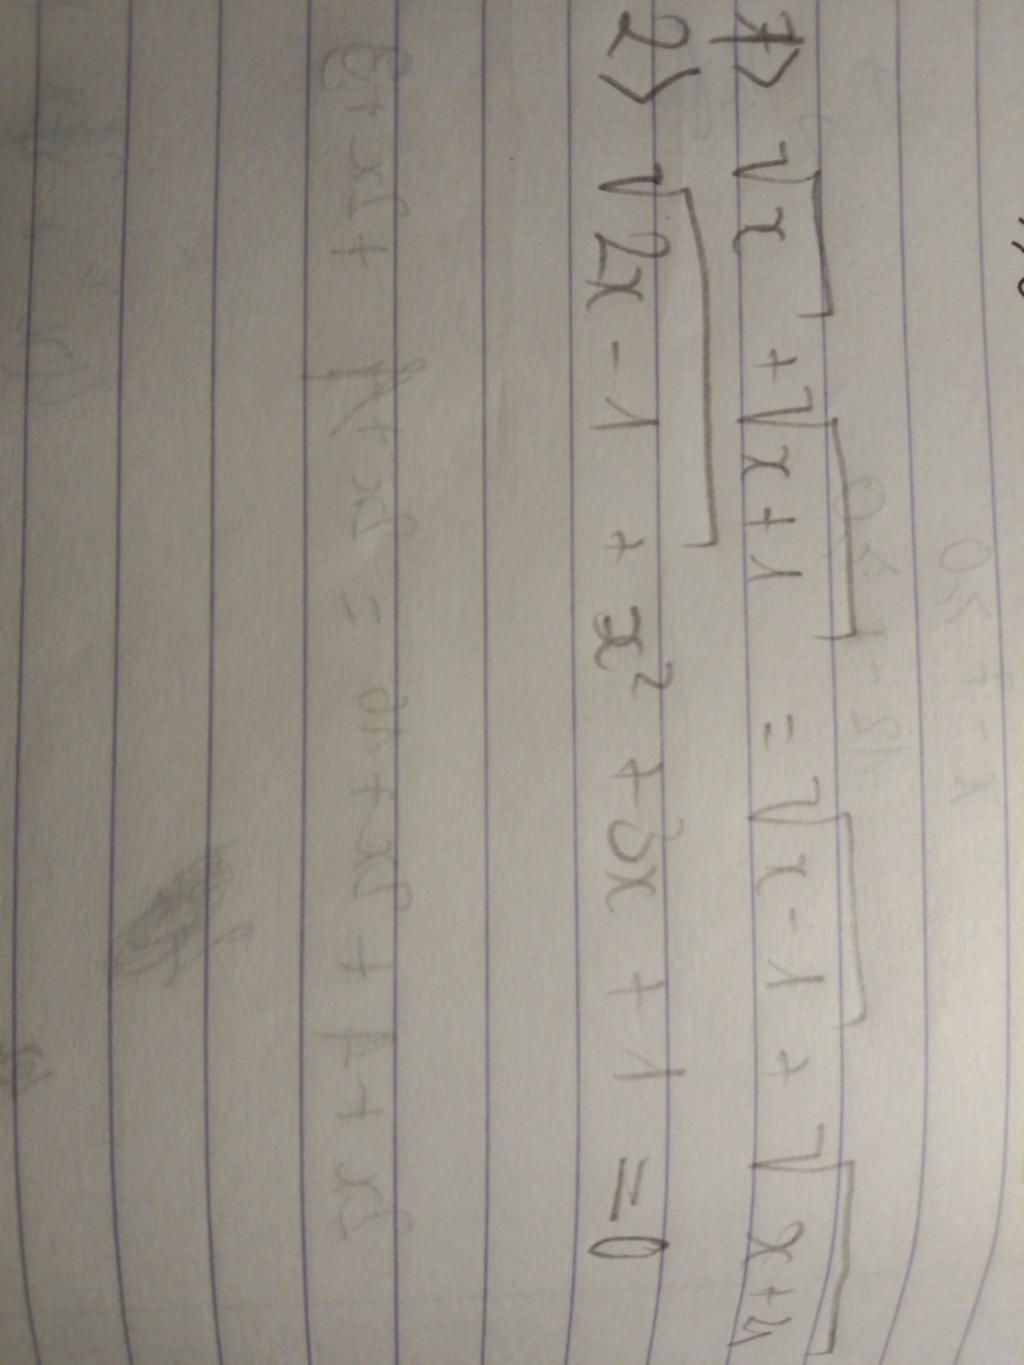 1) √x + √x+1 = √x-1 + √x+4
2) √2x-1 + x² + 3x + 1 = 0